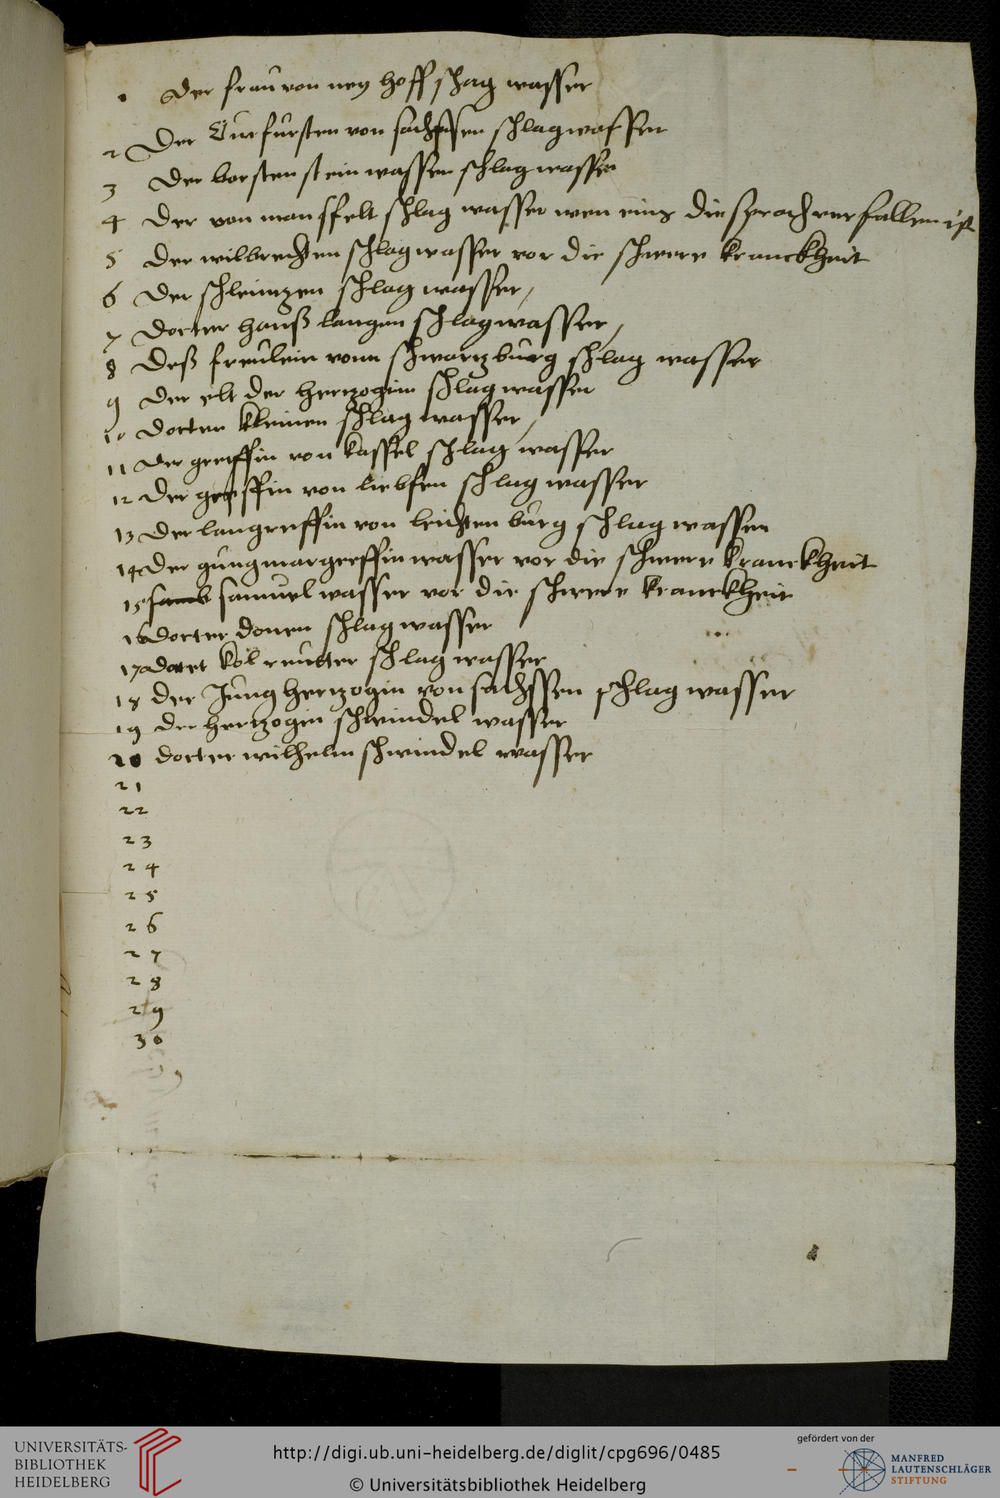 1 der frau von ney hoff schag wasser
2 Der Curfursten von sachssen schlagwasser
3 Der borsten stein wasser schlag wasser
4 der von mansfelt schlag wasser wen eins die sprach verfallen ist
5 der wilbrechten schlagwasser vor die schwere kranckheit
6 der schleinzen schlag wasser,
7 docter hanß langen schlagwasser,
8 deß freulein vonn schwartzburg schlag wasser
9 der elt der hertzogin schlagwasser
10 docter kleinen schlag wasser,
11 der greffin von kassel schlag wasser
12 der greffin von schlag wasser
13 der langreffin von leichten burg schlag wasser
14 der gung margreffin wasser vor die schwere kranckheit
15 samuel wasser vor die schwere kranckheit
16 docter donen schlag wasser
17 docter kol reutter schlag wasser
18 der Jung hertzogin von sachssen schlag wasser
19 der hertzogin schwindel wasser
20 docter wilhelm schwindel wasser
21
22
23
24
25
26
27
28
29
30
UNIVERSITÄTS-
BIBLIOTHEK
HEIDELBERG
http://digi.ub.uni-heidelberg.de/diglit/cpg696/0485
© Universitätsbibliothek Heidelberg
gefördert von der
MANFRED
LAUTENSCHLÄGER
STIFTUNG